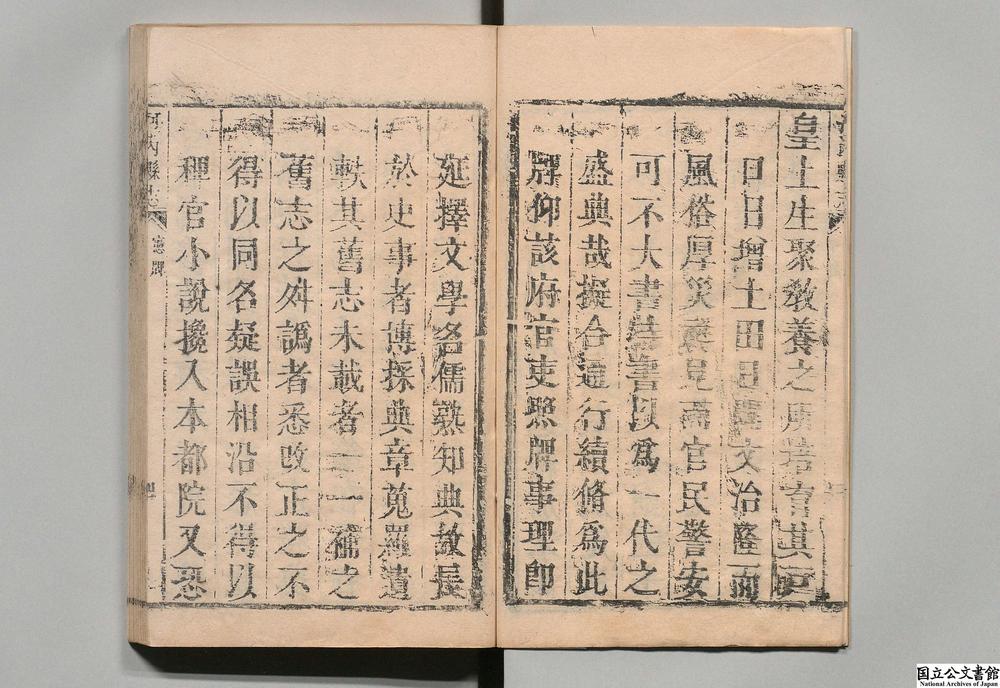 皇上生聚教養之
日日增土田日闢文治隆而
風俗厚災異見而官民警安
可不大書特書以為一代之
盛典哉擬合通行續脩為此
牌仰該府官吏照牌事理即
延擇文學名儒熟知典故長
於史事者博採典章蒐羅遺
軼其舊志未載者一一補之
舊志之舛譌者悉改正之不
得以同名疑誤相沿不得以
稗官小說攙入本都院又恐
河內縣志
憲牌
国立公文書館
National Archives of Japan